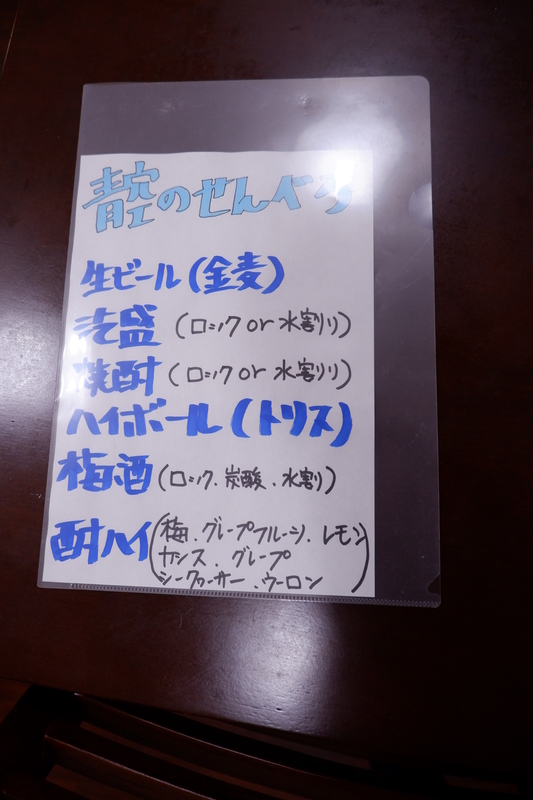 青空のせんべろ
生ビール(金麦)
泡盛 (ロック or 水割り)
焼酎 (ロック or 水割り)
ハイボール(トリス)
梅酒(ロック、炭酸、水割)
酎ハイ(梅、グレープフルーツ、レモン
カシス、グレープ
シークヮーサー、ウーロン)